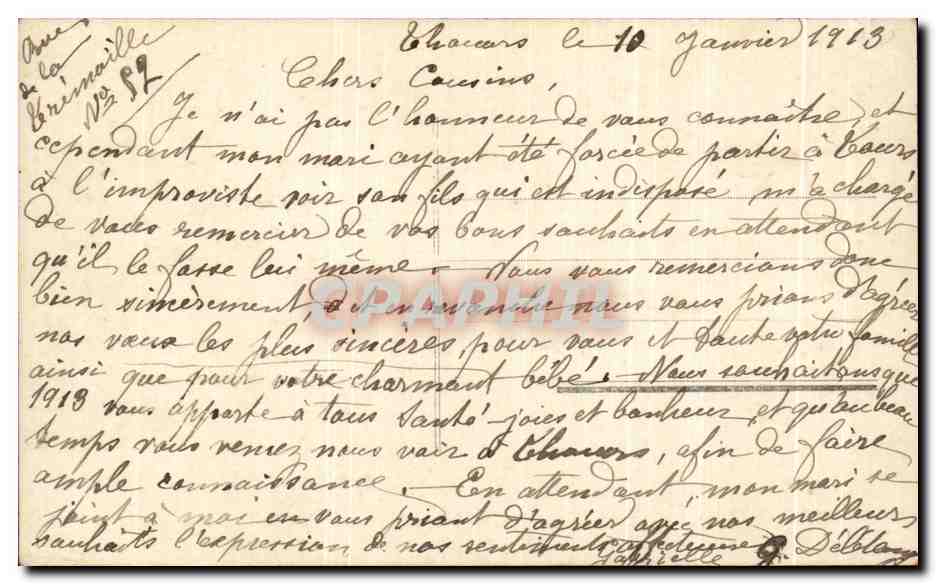 Rue
de la
Trémoille
No 59
Thouars le 10 Janvier 1913
Chers Cousins,
Je n'ai pas l'honneur de vous connaître et
cependant mon mari ayant été forcée de partir à Tours
à l'improviste voir son fils qui est indisposé m'a chargé
de vous remercier de vos bons souhaits en attendant
qu'il le fasse lui même. Nous vous remercions donc
bien sincèrement, et en revanche nous vous prions d'agréer
nos vœux les plus sincères pour vous et toute votre famille
ainsi que pour votre charmant bébé. Nous souhaitons que
1913 vous apporte à tous santé joies et bonheur et qu'au beau
temps vous veniez nous voir à Thouars, afin de faire
ample connaissance. En attendant mon mari se
joint à moi en vous priant d'agréer avec nos meilleurs
souhaits l'expression de nos sentiments affectueux
Gabrielle
CPAPHIL